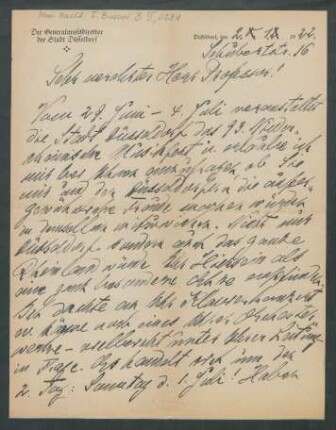 Mus. Nachl. F. Busoni B II,
Der Generalmusikdirektor
der Stadt Düsseldorf
Düsseldorf, den 2. 12. 1922.
Schubertstr. 16
Sehr verehrter Herr Professor!
Vom 29. Juni - 4. Juli veranstaltet
die Stadt Düsseldorf das 93. Nieder-
rheinische Musikfest u. erlaube ich
mir bei Ihnen anzufragen, ob Sie
mir und den Düsseldorfern die außer-
gewöhnliche Freude machen würden
in demselben mitzuwirken. Nicht nur
Düsseldorf sondern auch das ganze
Rheinland würde Ihr Hiersein als
eine ganz besondere Ehre empfinden.
Ich dachte an Ihr Klavierkonzert
u. käme noch eines Ihrer Orchester-
werke - vielleicht unter Ihrer Leitung
in Frage. Es handelt sich um den
2. Tag: Sonntag d. 1. Juli! Haben